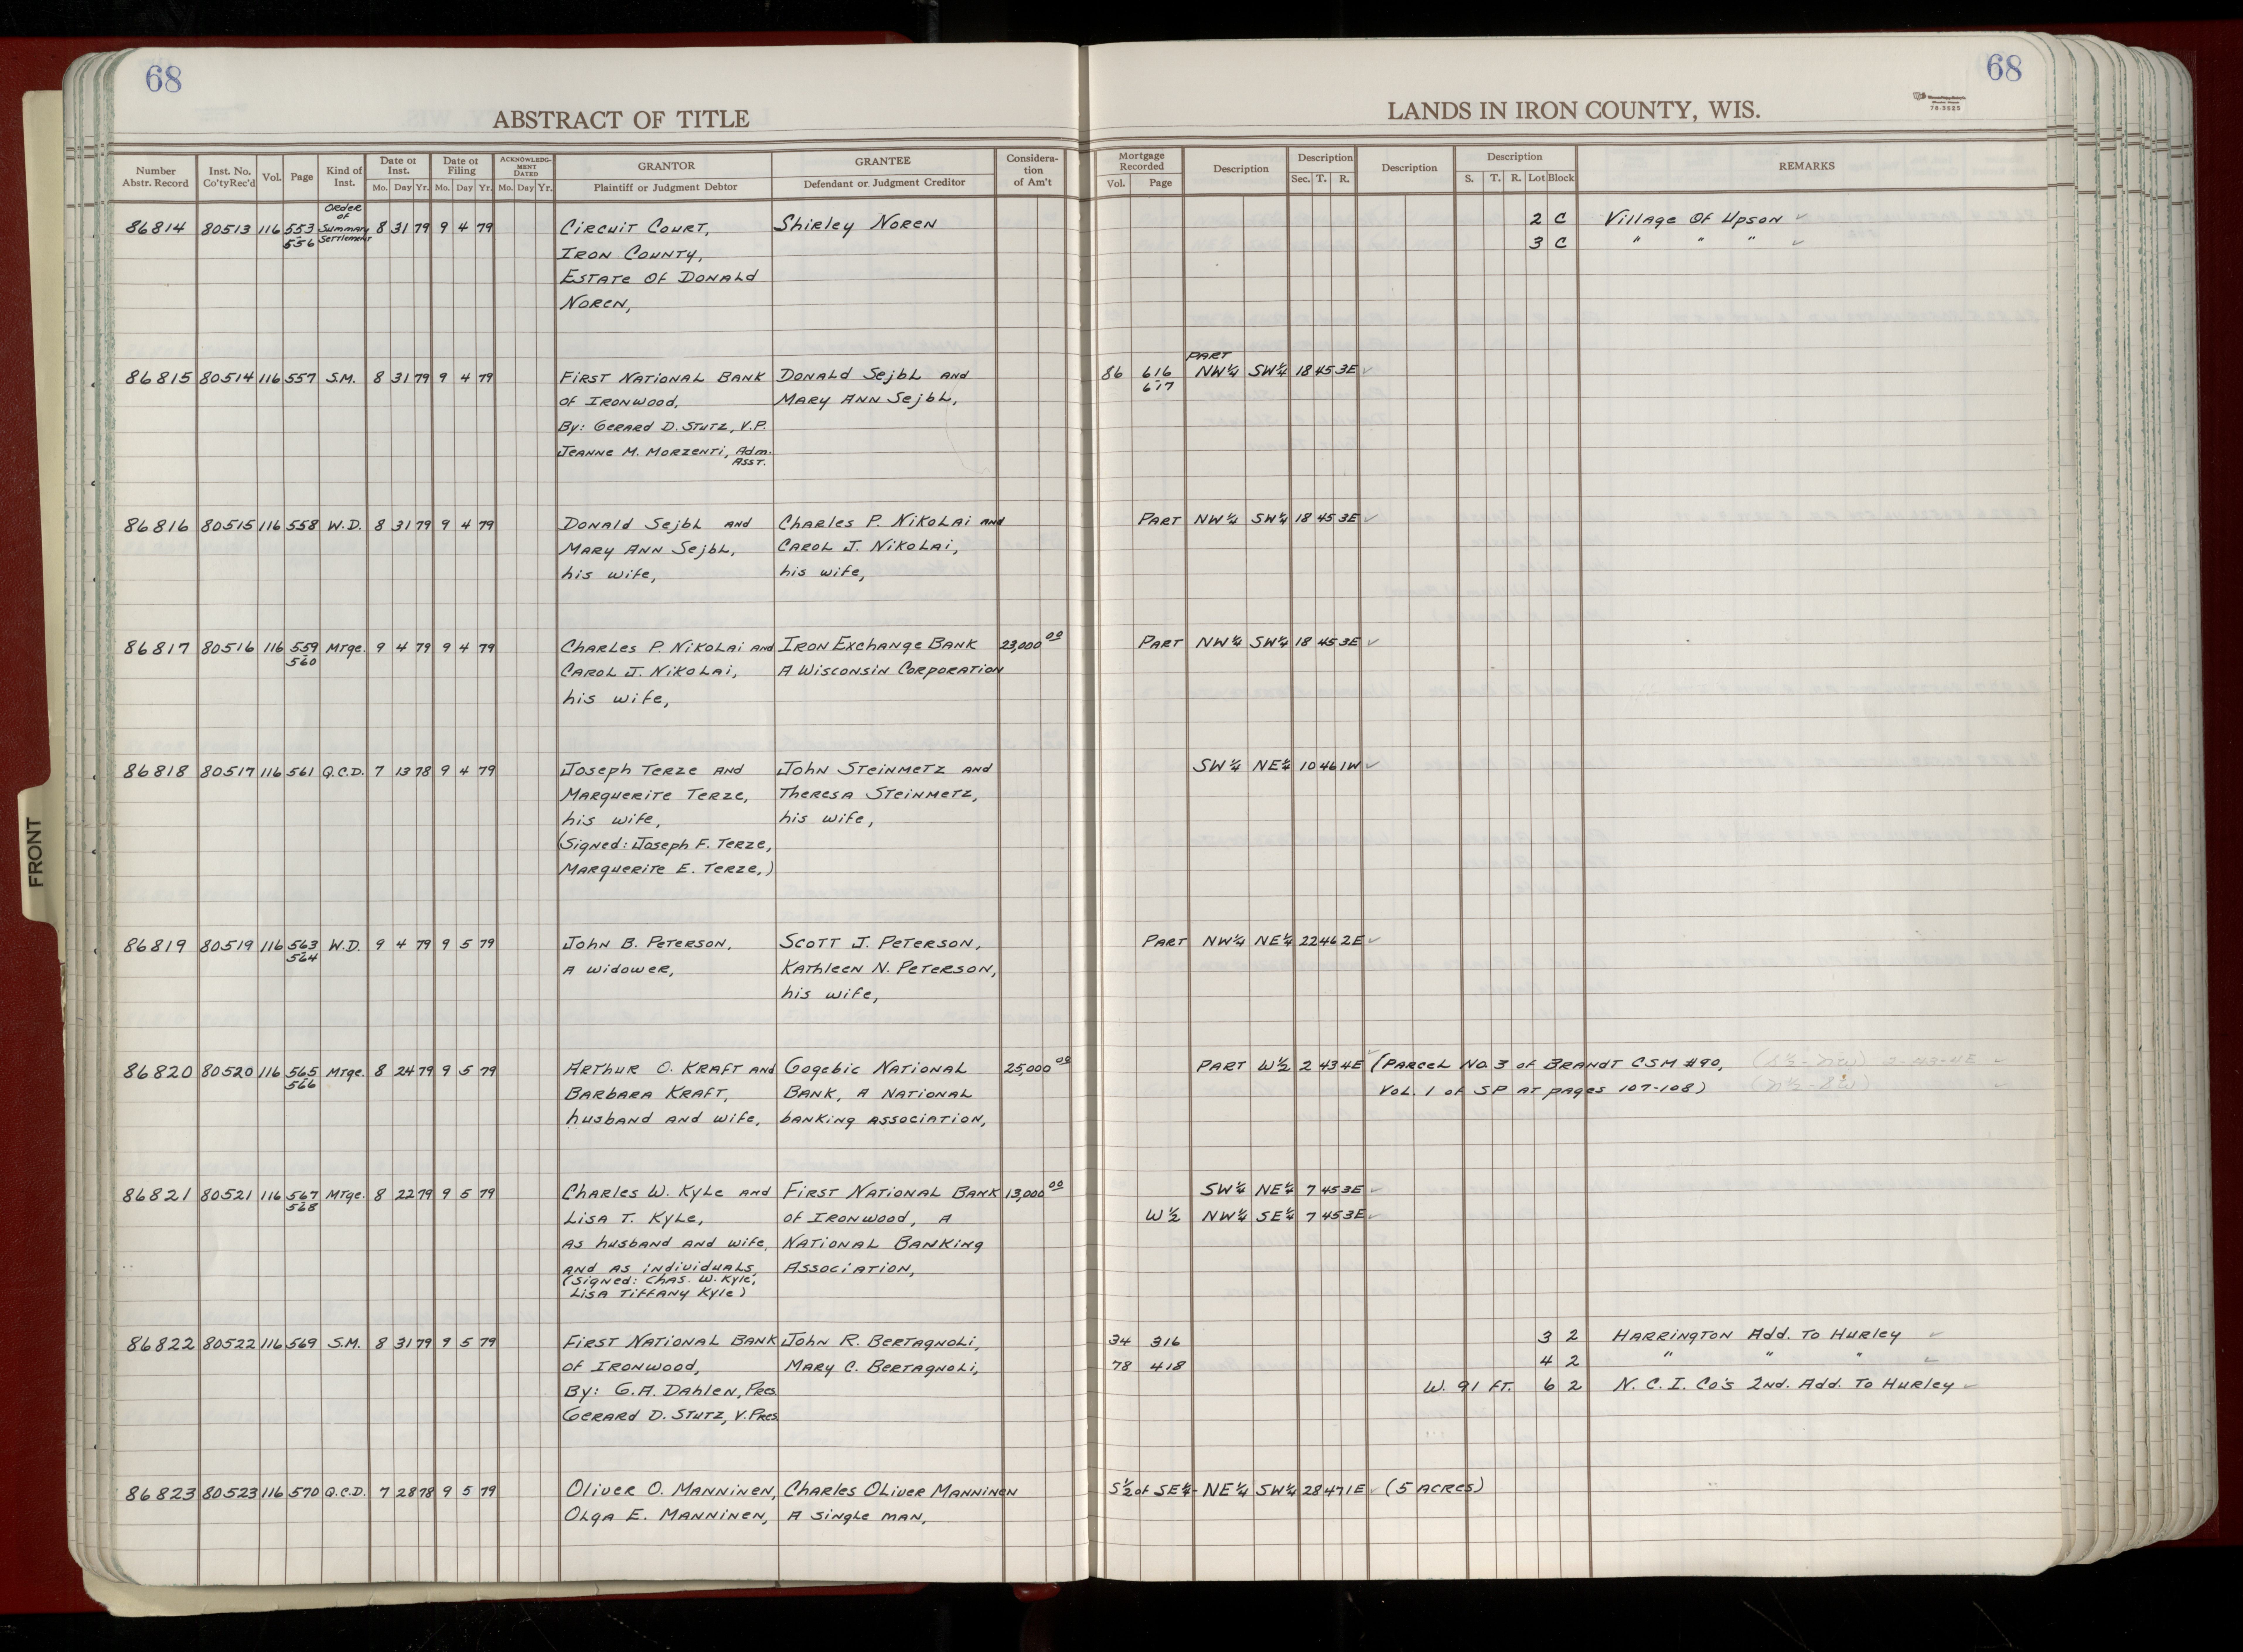 68
68
ABSTRACT OF TITLE
LANDS IN IRON COUNTY, WIS.
76-3525
Number Abstr. Record | Inst. No. Co'ty Rec'd | Vol. | Page | Kind of Inst. | Date of Inst. Mo. Day Yr. | Date of Filing Mo. Day Yr. | ACKNOWLEDGMENT DATED Mo. Day Yr. | GRANTOR Plaintiff or Judgment Debtor | GRANTEE Defendant or Judgment Creditor | Consideration of Am't | Mortgage Recorded Vol. Page | Description | Description Sec. T. R. | Description | Description S. T. R. Lot Block | REMARKS
Order of
86814 80513 116 553 Summary 8 31 79 9 4 79 Circuit Court, Shirley Noren 2 C Village of Upson
556 Settlement Iron County, 3 C " " "
Estate of Donald
Noren,
PART
86815 80514 116 557 S.M. 8 31 79 9 4 79 First National Bank Donald Sejbl and 86 616 NW¼ SW¼ 18 45 3E
of Ironwood, Mary Ann Sejbl, 617
By: Gerard D. Stutz, V.P.
Jeanne M. Morzenti, Adm.
Asst.
86816 80515 116 558 W.D. 8 31 79 9 4 79 Donald Sejbl and Charles P. Nikolai and Part NW¼ SW¼ 18 45 3E
Mary Ann Sejbl, Carol J. Nikolai,
his wife, his wife,
86817 80516 116 559 Mtge. 9 4 79 9 4 79 Charles P. Nikolai and Iron Exchange Bank 23,000 00 Part NW¼ SW¼ 18 45 3E
560 Carol J. Nikolai, A Wisconsin Corporation
his wife,
86818 80517 116 561 Q.C.D. 7 13 78 9 4 79 Joseph Terze and John Steinmetz and SW¼ NE¼ 10 46 1W
Marguerite Terze, Theresa Steinmetz,
his wife, his wife,
(Signed: Joseph F. Terze,
Marguerite E. Terze,)
86819 80519 116 563 W.D. 9 4 79 9 5 79 John B. Peterson, Scott J. Peterson, Part NW¼ NE¼ 22 46 2E
564 A widower, Kathleen N. Peterson,
his wife,
86820 80520 116 565 Mtge. 8 24 79 9 5 79 Arthur O. Kraft and Gogebic National 25,000 00 Part W½ 2 43 4E (Parcel No. 3 of Brandt CSM #90, (S½-NW) 2-43-4E
566 Barbara Kraft, Bank, A National Vol. 1 of SP at pages 107-108) (N½-SW)
husband and wife, banking association,
86821 80521 116 567 Mtge. 8 22 79 9 5 79 Charles W. Kyle and First National Bank 13,000 00 SW¼ NE¼ 7 45 3E
568 Lisa T. Kyle, of Ironwood, A W½ NW¼ SE¼ 7 45 3E
as husband and wife, National Banking
and as individuals, Association,
(Signed: Chas. W. Kyle,
Lisa Tiffany Kyle)
86822 80522 116 569 S.M. 8 31 79 9 5 79 First National Bank John R. Bertagnoli, 34 316 3 2 Harrington Add. To Hurley
of Ironwood, Mary C. Bertagnoli, 78 418 4 2 " " "
By: G.A. Dahlen, Pres. W. 91 ft. 6 2 N.C.I. Co's 2nd. Add. To Hurley
Gerard D. Stutz, V. Pres.
86823 80523 116 570 Q.C.D. 7 28 78 9 5 79 Oliver O. Manninen, Charles Oliver Manninen S½ of SE¼- NE¼ SW¼ 28 47 1E (5 acres)
Olga E. Manninen, A single man,
FRONT